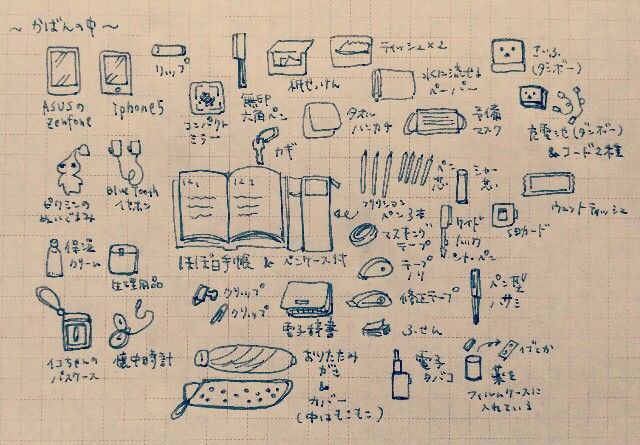 ～かばんの中～
ASUSの
Zenfone
iphone5
リップ
コンパクト
ミラー
無印
六角ペン
紙せっけん
ティッシュ×2
水に流せる
ペーパー
さいふ
(ダンボー)
タオル
ハンカチ
予備
マスク
充電池(ダンボー)
&コード2種
カギ
ピクミンの
ぬいぐるみ
Blue Tooth
イヤホン
12/1
12/2
ほぼ日手帳 & ペンケース付
フリクション
ペン3本
ペン
芯
シャー
芯
ウェットティッシュ
SDカード
マスキング
テープ
保湿
クリーム
生理用品
テープ
のり
ペン型
ハサミ
イコちゃんの
パスケース
懐中時計
クリップ
クリップ
電子辞書
修正テープ
ふせん
おりたたみ
がさ
&
カバー
(中はもこもこ)
電子
タバコ
イブとか
薬を
フィルムケースに
入れている